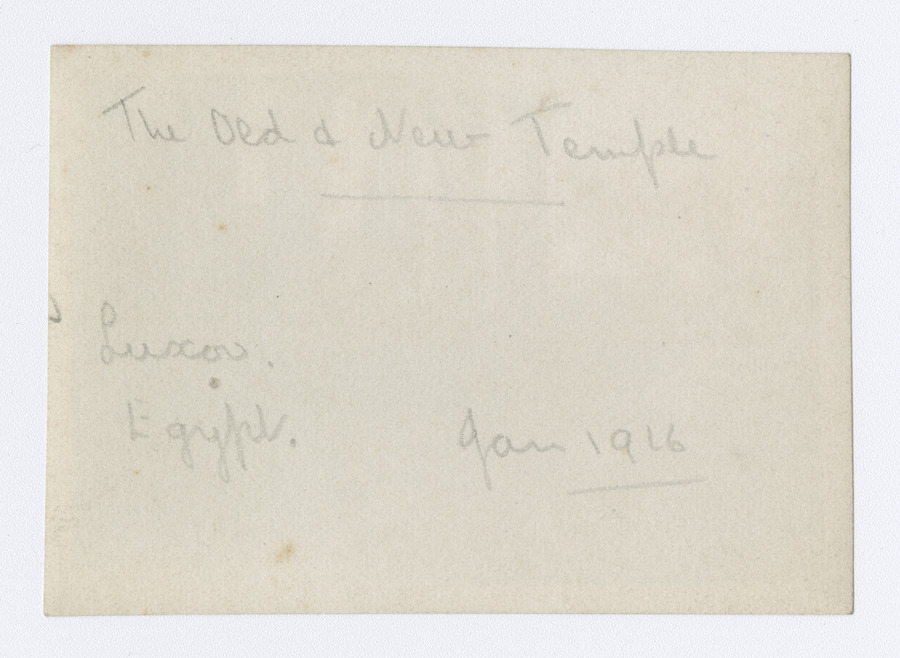 The Old & New Temple
Luxor.
Egypt.
Jan 1916